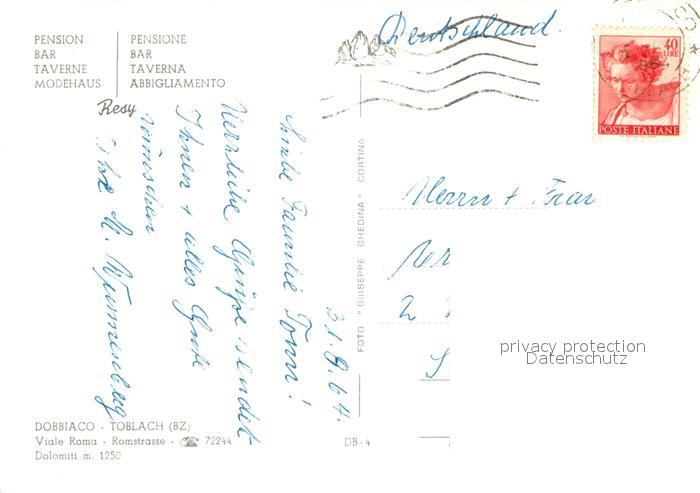 PENSION
BAR
TAVERNE
MODEHAUS
PENSIONE
BAR
TAVERNA
ABBIGLIAMENTO
Resy
Deutschland.
40
LIRE
POSTE ITALIANE
31.8.64.
Liebe Familie Tonn!
Herzliche Grüße sendet
Ihnen + alles Gute
wünschen
Ihre M.
Herrn + Frau
FOTO "GIUSEPPE GHEDINA" CORTINA
privacy protection
Datenschutz
DOBBIACO - TOBLACH (BZ)
Viale Roma - Romstrasse - ☎ 72244
Dolomiti m. 1250
DB-4